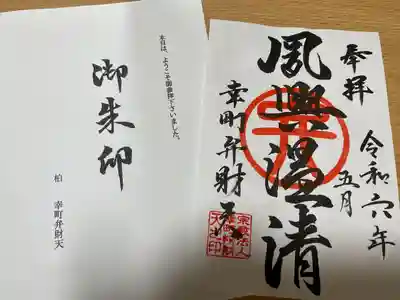 奉拝
令和六年
五月
夙興温清
幸町弁財天
本日は、ようこそ御参拝下さいました。
御朱印
柏 幸町弁財天